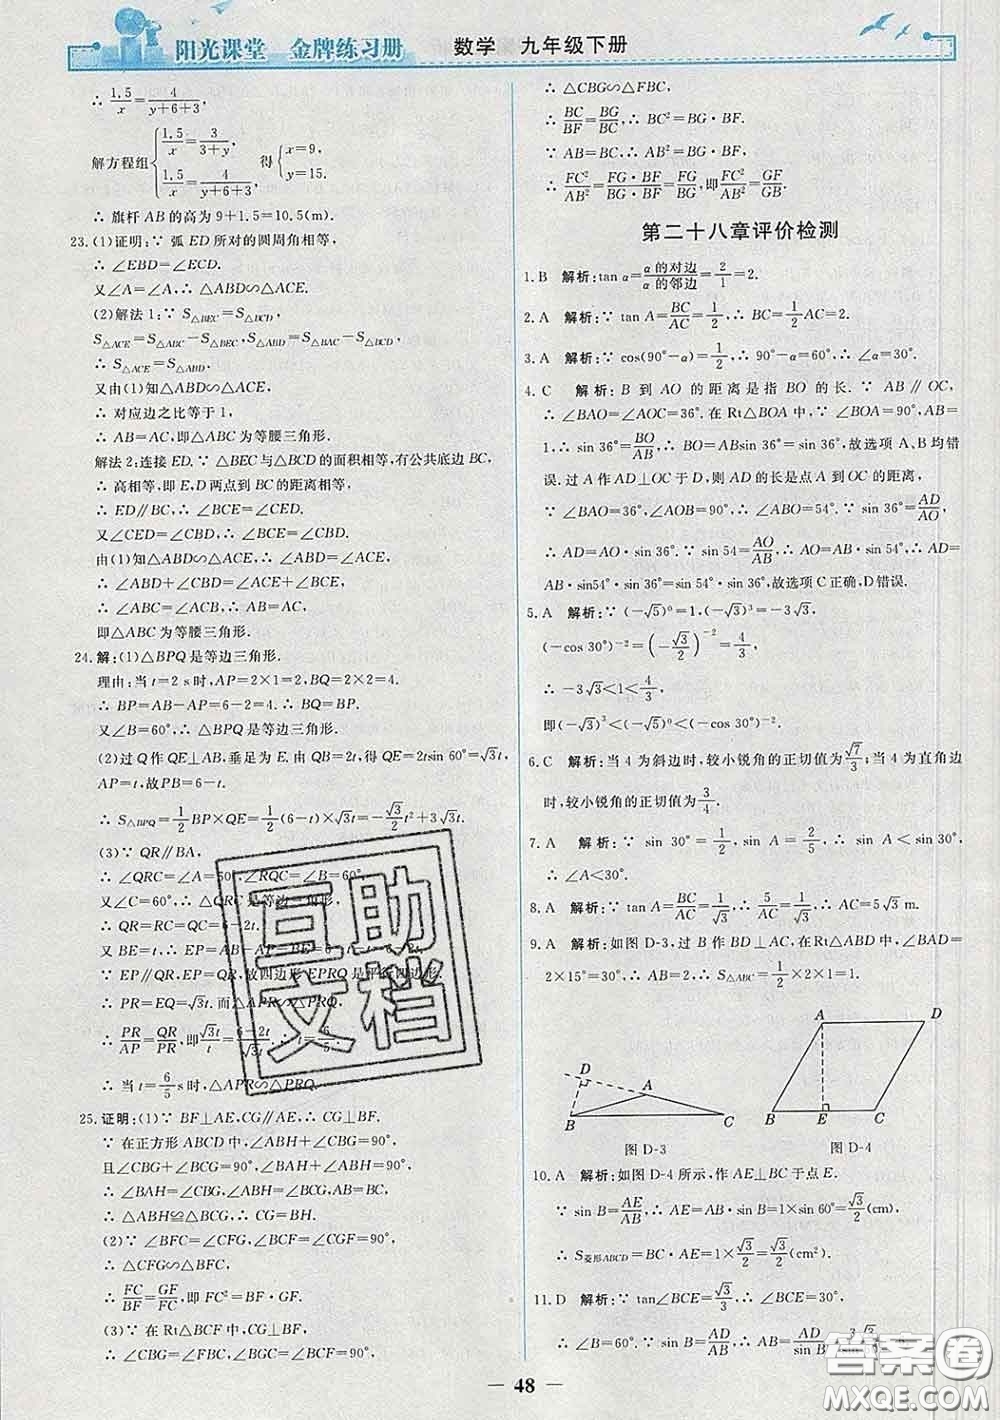 阳光课堂 金牌练习册 数学 九年级下册
∴ 1.5/x = 4/(y+6+3),
解方程组 { 1.5/x = 3/(3+y), 1.5/x = 4/(y+6+3), 得 { x=9, y=15.
∴ 旗杆 AB 的高为 9+1.5=10.5(m).
23.(1)证明:∵ 弧 ED 所对的圆周角相等,
∴ ∠EBD=∠ECD.
又∠A=∠A,∴ △ABD∽△ACE.
(2)解法 1:∵ S△BEC=S△BCD,
S△ACE=S△ABC-S△BEC,S△ABD=S△BAC-S△BCD,
∴ S△ACE=S△ABD.
又由(1)知△ABD∽△ACE,
∴ 对应边之比等于 1,
∴ AB=AC,即△ABC 为等腰三角形.
解法 2:连接 ED.∵ △BEC与△BCD的面积相等,有公共底边 BC,
∴ 高相等,即 E,D 两点到 BC 的距离相等,
∴ ED∥BC,∴ ∠BCE=∠CED.
又∠CED=∠CBD,∴ ∠BCE=∠CBD,
由(1)知△ABD∽△ACE,
∴ ∠ABD+∠CBD=∠ACE+∠BCE,
∴ ∠ABC=∠ACB,∴ AB=AC,
即△ABC 为等腰三角形.
24.解:(1)△BPQ 是等边三角形.
理由:当 t=2 s 时,AP=2×1=2,BQ=2×2=4.
∴ BP=AB-AP=6-2=4. ∴ BQ=BP.
又∠B=60°,∴ △BPQ 是等边三角形.
(2)过 Q 作 QE⊥AB,垂足为 E.由 QB=2t,得 QE=2tsin 60°=√3t.由
AP=t,故 PB=6-t.
∴ S△BPQ=1/2BP×QE=1/2(6-t)×√3t=-√3/2t²+3√3t.
(3)∵ QR∥BA,
∴ ∠QRC=∠A=60°,∠RQC=∠B=60°.
又∠C=60°,∴ △QRC 是等边三角形,
∴ QR=RC=QC=6-2t.
又 BE=t,∴ EP=AB-AP-BE=
∵ EP∥QR,EP=QR,故四边形 EPRQ 是平行四边形.
∴ PR=EQ=√3t.而△APR∽△PRQ,
∴ PR/AP=QR/PR,即√3t/t=(6-2t)/√3t,∴ t=6/5.
∴ 当 t=6/5 s 时,△APR∽△PRQ.
25.证明:(1)∵ BF⊥AE,CG∥AE,∴ CG⊥BF.
∵ 在正方形 ABCD 中,∠ABH+∠CBG=90°,
且∠CBG+∠BCG=90°,∠BAH+∠ABH=90°,
∴ ∠BAH=∠CBG,∠ABH=∠BCG,
∴ △ABH≌△BCG,∴ CG=BH.
(2)∵ ∠BFC=∠CFG,∠BCF=∠CGF=90°,
∴ △CFG∽△BFC,
∴ FC/BF=GF/FC,即 FC²=BF·GF.
(3)∵ 在 Rt△BCF 中,CG⊥BF,
∴ ∠CBG=∠FBC,∠CGB=∠FCB=90°,
∴ △CBG∽△FBC,
∴ BC/BF=BG/BC,∴ BC²=BG·BF.
∵ AB=BC,∴ AB²=BG·BF,
∴ FC²/AB²=FG·BF/BG·BF=FG/BG,即FC²/AB²=GF/GB.
第二十八章评价检测
1.B 解析:tan α=α的对边/α的邻边=2/1=2.
2.A 解析:∵ tan A=BC/AC=1/2,∴ BC=1/2AC=2.
3.A 解析:∵ cos(90°-α)=1/2,∴ 90°-α=60°,∴ ∠α=30°.
4.C 解析:B 到 AO 的距离是指 BO 的长.∵ AB∥OC,
∴ ∠BAO=∠AOC=36°.在 Rt△BOA 中,∵ ∠BOA=90°,AB=
1.∴ sin 36°=BO/AB,∴ BO=ABsin 36°=sin 36°,故选项 A、B 均错
误.过 A 作 AD⊥OC 于 D,则 AD 的长是点 A 到 OC 的距离,
∵ ∠BAO=36°,∠AOB=90°,∴ ∠ABO=54°.∵ sin 36°=AD/AO,
∴ AD=AO·sin 36°.∵ sin 54=AO/AB,∴ AO=AB·sin 54°,∴ AD=
AB·sin54°·sin 36°=sin 54°·sin 36°,故选项 C 正确,D 错误.
5.A 解析:∵ (-√5)⁰=1,(-√3)³=-3√3,
(-cos 30°)⁻²=(-√3/2)⁻²=4/3,
∴ -3√3<1<4/3,
即(-√3)³<(-√5)⁰<(-cos 30°)⁻².
6.C 解析:当 4 为斜边时,较小锐角的正切值为√7/3;当 4 为直角边
时,较小锐角的正切值为3/4.
7.A 解析:∵ sin 30°=1/2,sin A=2/5,∴ sin A<sin 30°,
∴ ∠A<30°.
8.A 解析:∵ tan A=BC/AC=1/√3,∴ 5/AC=1/√3,∴ AC=5√3 m.
9.A 解析:如图 D-3,过 B 作 BD⊥AC,在 Rt△ABD 中,∠BAD=
2×15°=30°,∴ AB=2,∴ S△ABC=1/2×2×1=1.
D A B C
图 D-3
A D B E C
图 D-4
10.A 解析:如图 D-4 所示,作 AE⊥BC 于点 E.
∵ sin B=AE/AB,∴ AE=AB·sin B=1×sin 60°=√3/2(cm),
∴ S菱形ABCD=BC·AE=1×√3/2=√3/2(cm²).
11.D 解析:∵ tan∠BCE=√3/3,∴ ∠BCE=30°,
∴ ∠B=60°.∵ sin B=AD/AB,∴ AB=AD/sin B
48
互助文档
答案圈
MXQE.COM